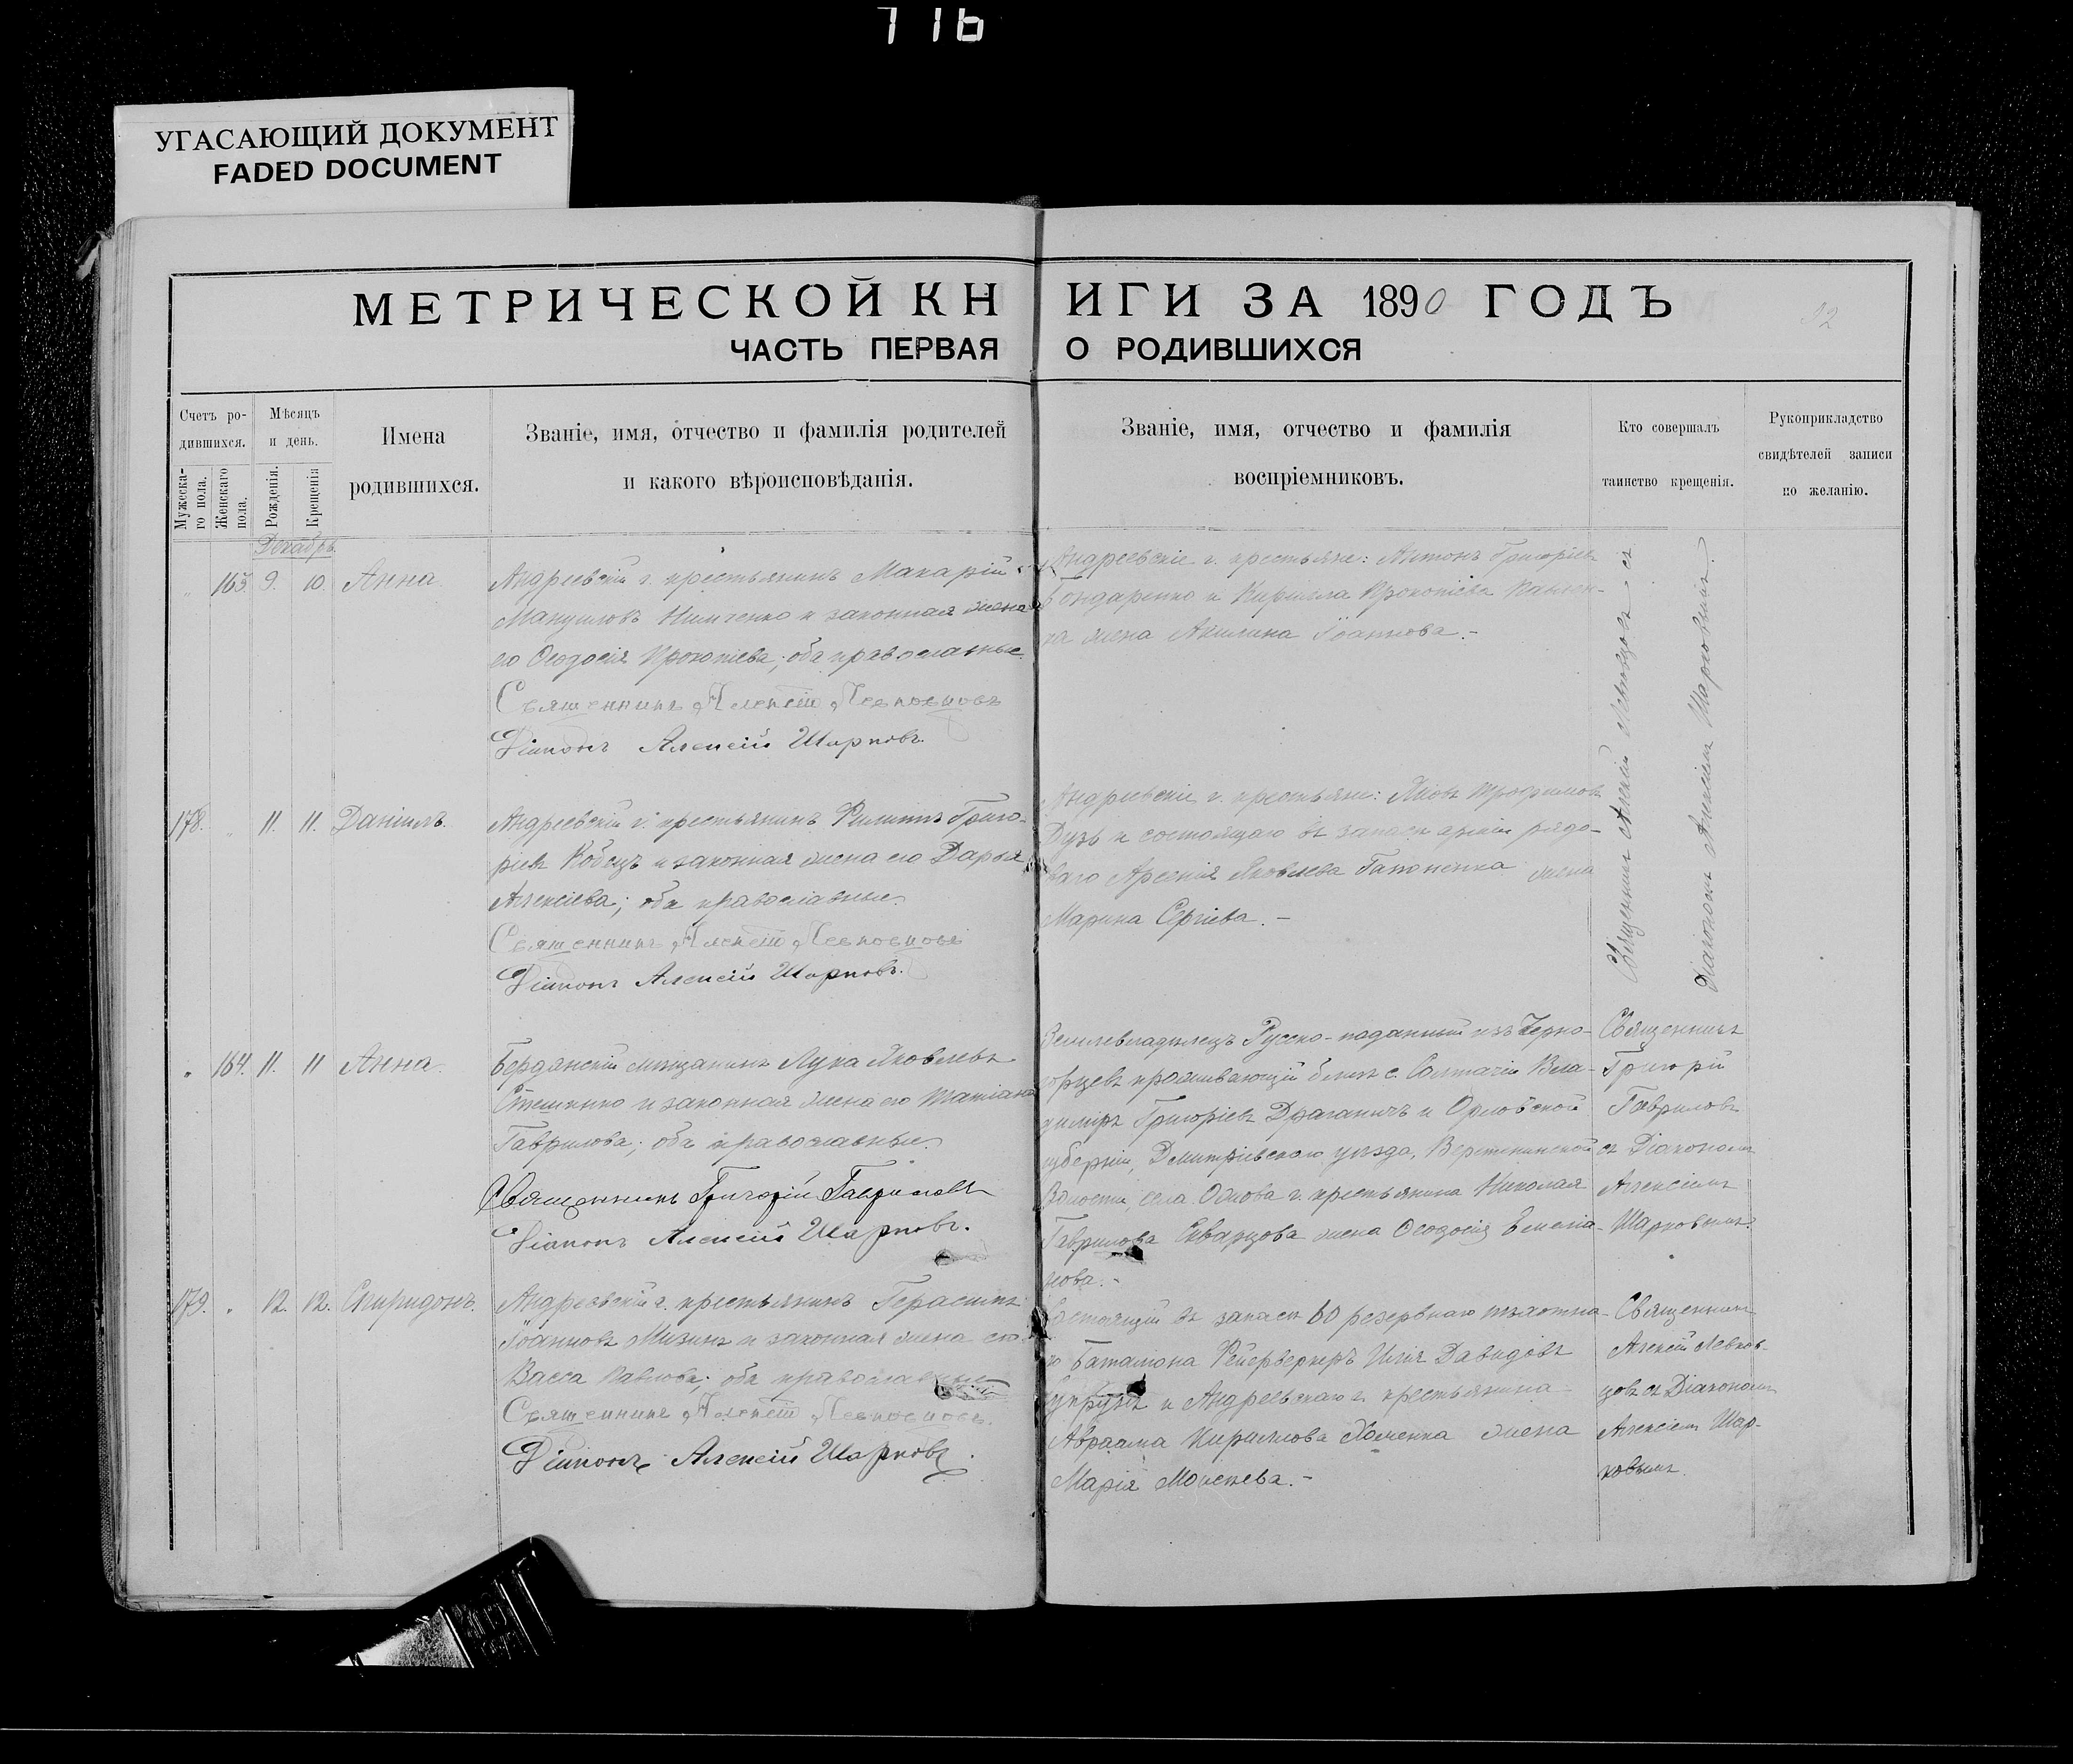 716
УГАСАЮЩИЙ ДОКУМЕНТ
FADED DOCUMENT
МЕТРИЧЕСКОЙ КНИГИ ЗА 1890 ГОДЪ
92
ЧАСТЬ ПЕРВАЯ О РОДИВШИХСЯ
Счетъ ро-
дившихся.
Мужеска-
го пола.
Женскаго
пола.
Мѣсяцъ
и день.
Рожденія.
Крещенія
Имена
родившихся.
Званіе, имя, отчество и фамилія родителей
и какого вѣроисповѣданія.
Званіе, имя, отчество и фамилія
воспріемниковъ.
Кто совершалъ
таинство крещенія.
Рукоприкладство
свидѣтелей записи
по желанію.
Декабрь.
" 163. 9. 10. Анна.
Андреевскій г. крестьянинъ Макарій
Мануиловъ Нимченко и законная жена
его Ѳеодосія Прокопіева; оба православные.
Священникъ Алексій Левковцовъ
Діаконъ Алексій Шарковъ.
Андреевскіе г. крестьяне: Антонъ Григоріевъ
Бондаренко и Кирилла Прокопіева Павлен-
ка жена Акилина Іоаннова.-
Священникъ Алексій Левковцовъ съ
Діакономъ Алексіемъ Шарковымъ.
178. " 11. 11. Даніилъ.
Андреевскій г. крестьянинъ Филиппъ Григо-
ріевъ Кобецъ и законная жена его Дарья
Алексіева; оба православные.
Священникъ Алексій Левковцовъ
Діаконъ Алексій Шарковъ.
Андреевскіе г. крестьяне: Яковъ Трофимовъ
Дузь и состоящаго въ запасѣ арміи рядо-
ваго Арсенія Яковлева Гапоненка жена
Марина Сергіева.-
" 164. 11. 11 Анна.
Бердянскій мѣщанинъ Лука Яковлевъ
Стешенко и законная жена его Татіана
Гаврилова; оба православные.
Священникъ Григорій Гавриловъ
Діаконъ Алексій Шарковъ.
Землевладѣлецъ Русско-поданный изъ Черно-
горцевъ проживающій близъ с. Солтачіи Вла-
диміръ Григоріевъ Драганичъ и Орловской
губерніи, Дмитріевскаго уѣзда,
Волости, села г. крестьянина Николая
Гаврилова Скварцова жена Ѳеодосія Емеліа-
нова.-
Священникъ
Григорій
Гавриловъ
съ Діакономъ
Алексіемъ
Шарковымъ.
179. " 12. 12. Спиридонъ.
Андреевскій г. крестьянинъ Герасимъ
Іоанновъ Мизинъ и законная жена его
Васса Павлова; оба православные
Священникъ Алексій Левковцовъ.
Діаконъ Алексій Шарковъ.
Состоящій въ запасѣ 60 резервнаго пѣхотна-
го Баталіона Фейерверкеръ Илія Давидовъ
Супрунъ и Андреевскаго г. крестьянина
Авраама Кириллова Хоменка жена
Марія Моисеева.-
Священникъ
Алексій Левков-
цовъ съ Діакономъ
Алексіемъ Шар-
ковымъ.